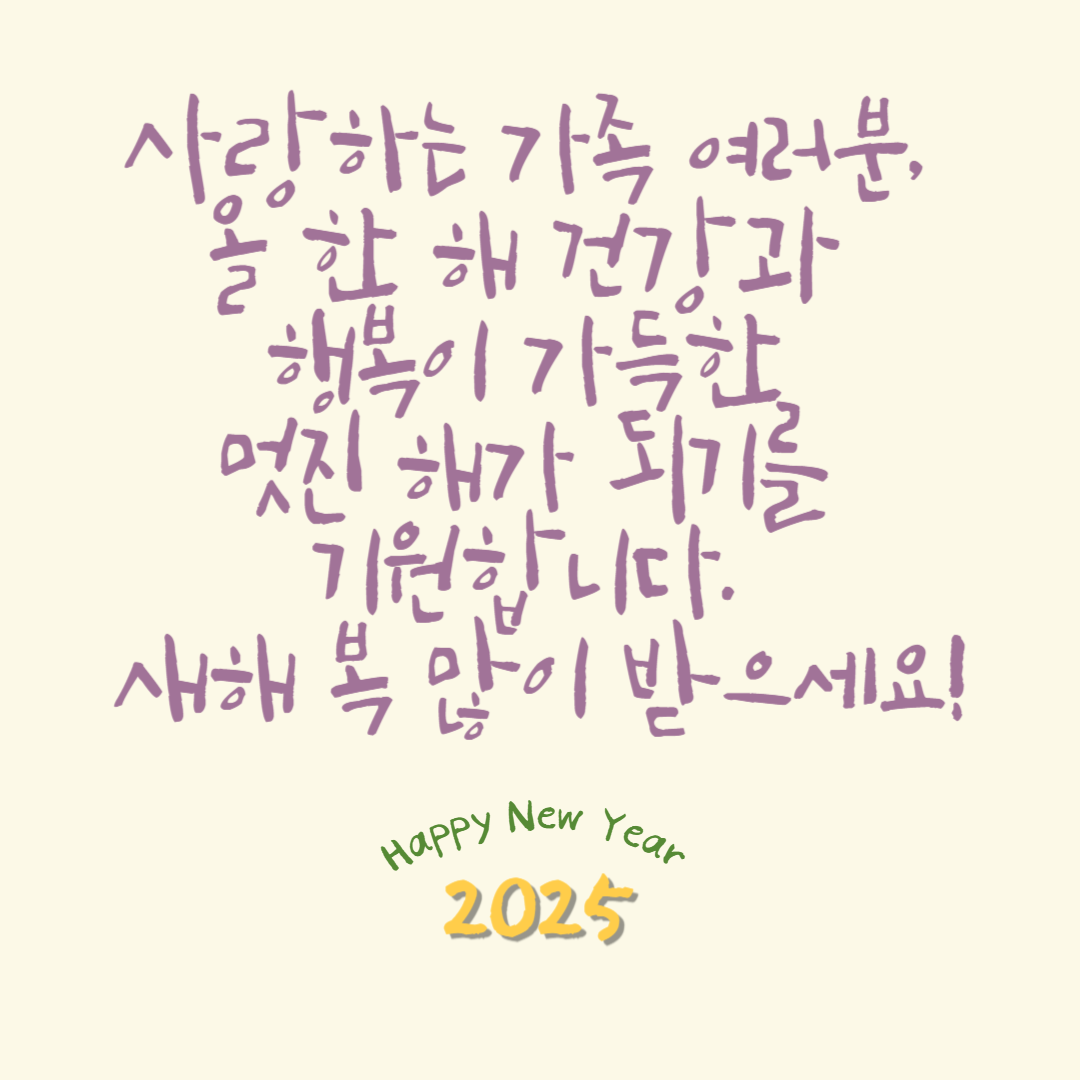 사랑하는 가족 여러분,
올 한 해 건강과
행복이 가득한
멋진 해가 되기를
기원합니다.
새해 복 많이 받으세요!
Happy New Year
2025